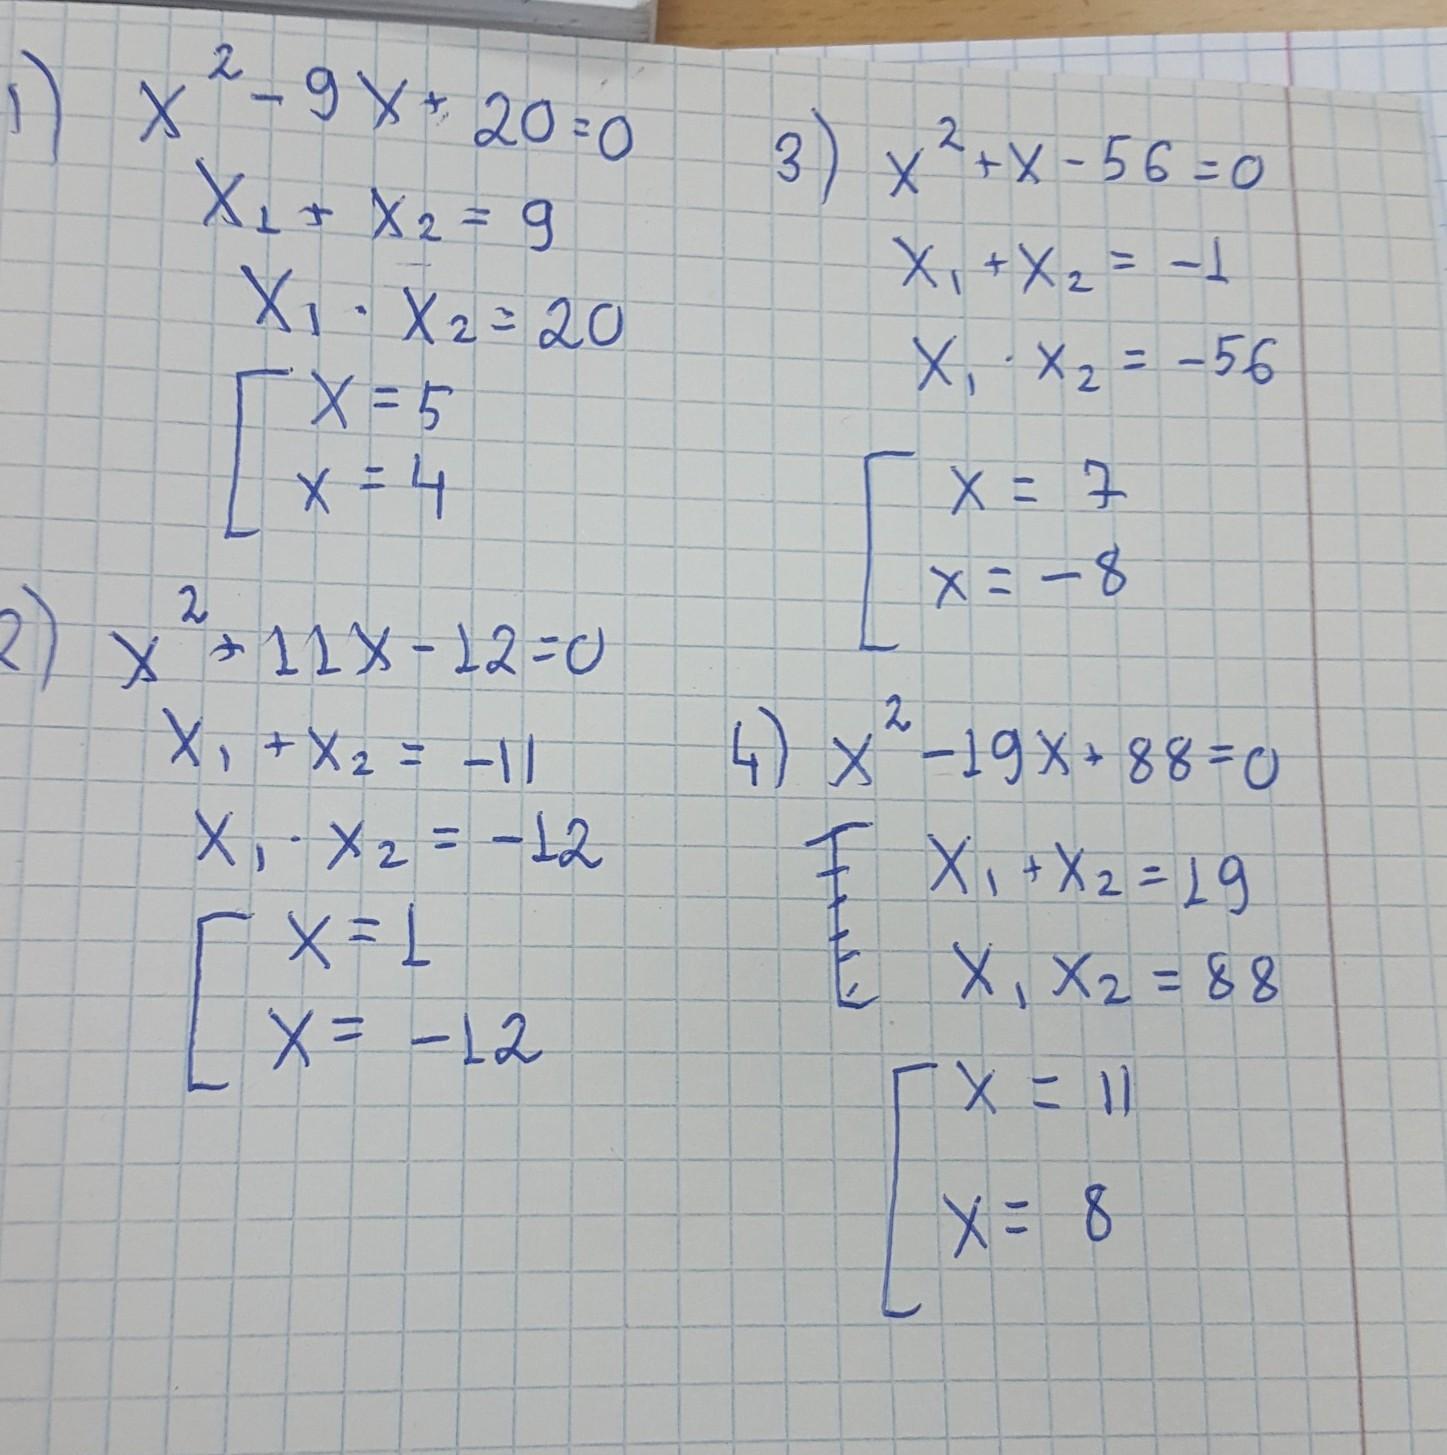 1) x² - 9x + 20 = 0
x₁ + x₂ = 9
x₁ · x₂ = 20
[ x = 5
x = 4
2) x² + 11x - 12 = 0
x₁ + x₂ = -11
x₁ · x₂ = -12
[ x = 1
x = -12
3) x² + x - 56 = 0
x₁ + x₂ = -1
x₁ · x₂ = -56
[ x = 7
x = -8
4) x² - 19x + 88 = 0
x₁ + x₂ = 19
x₁ x₂ = 88
[ x = 11
x = 8